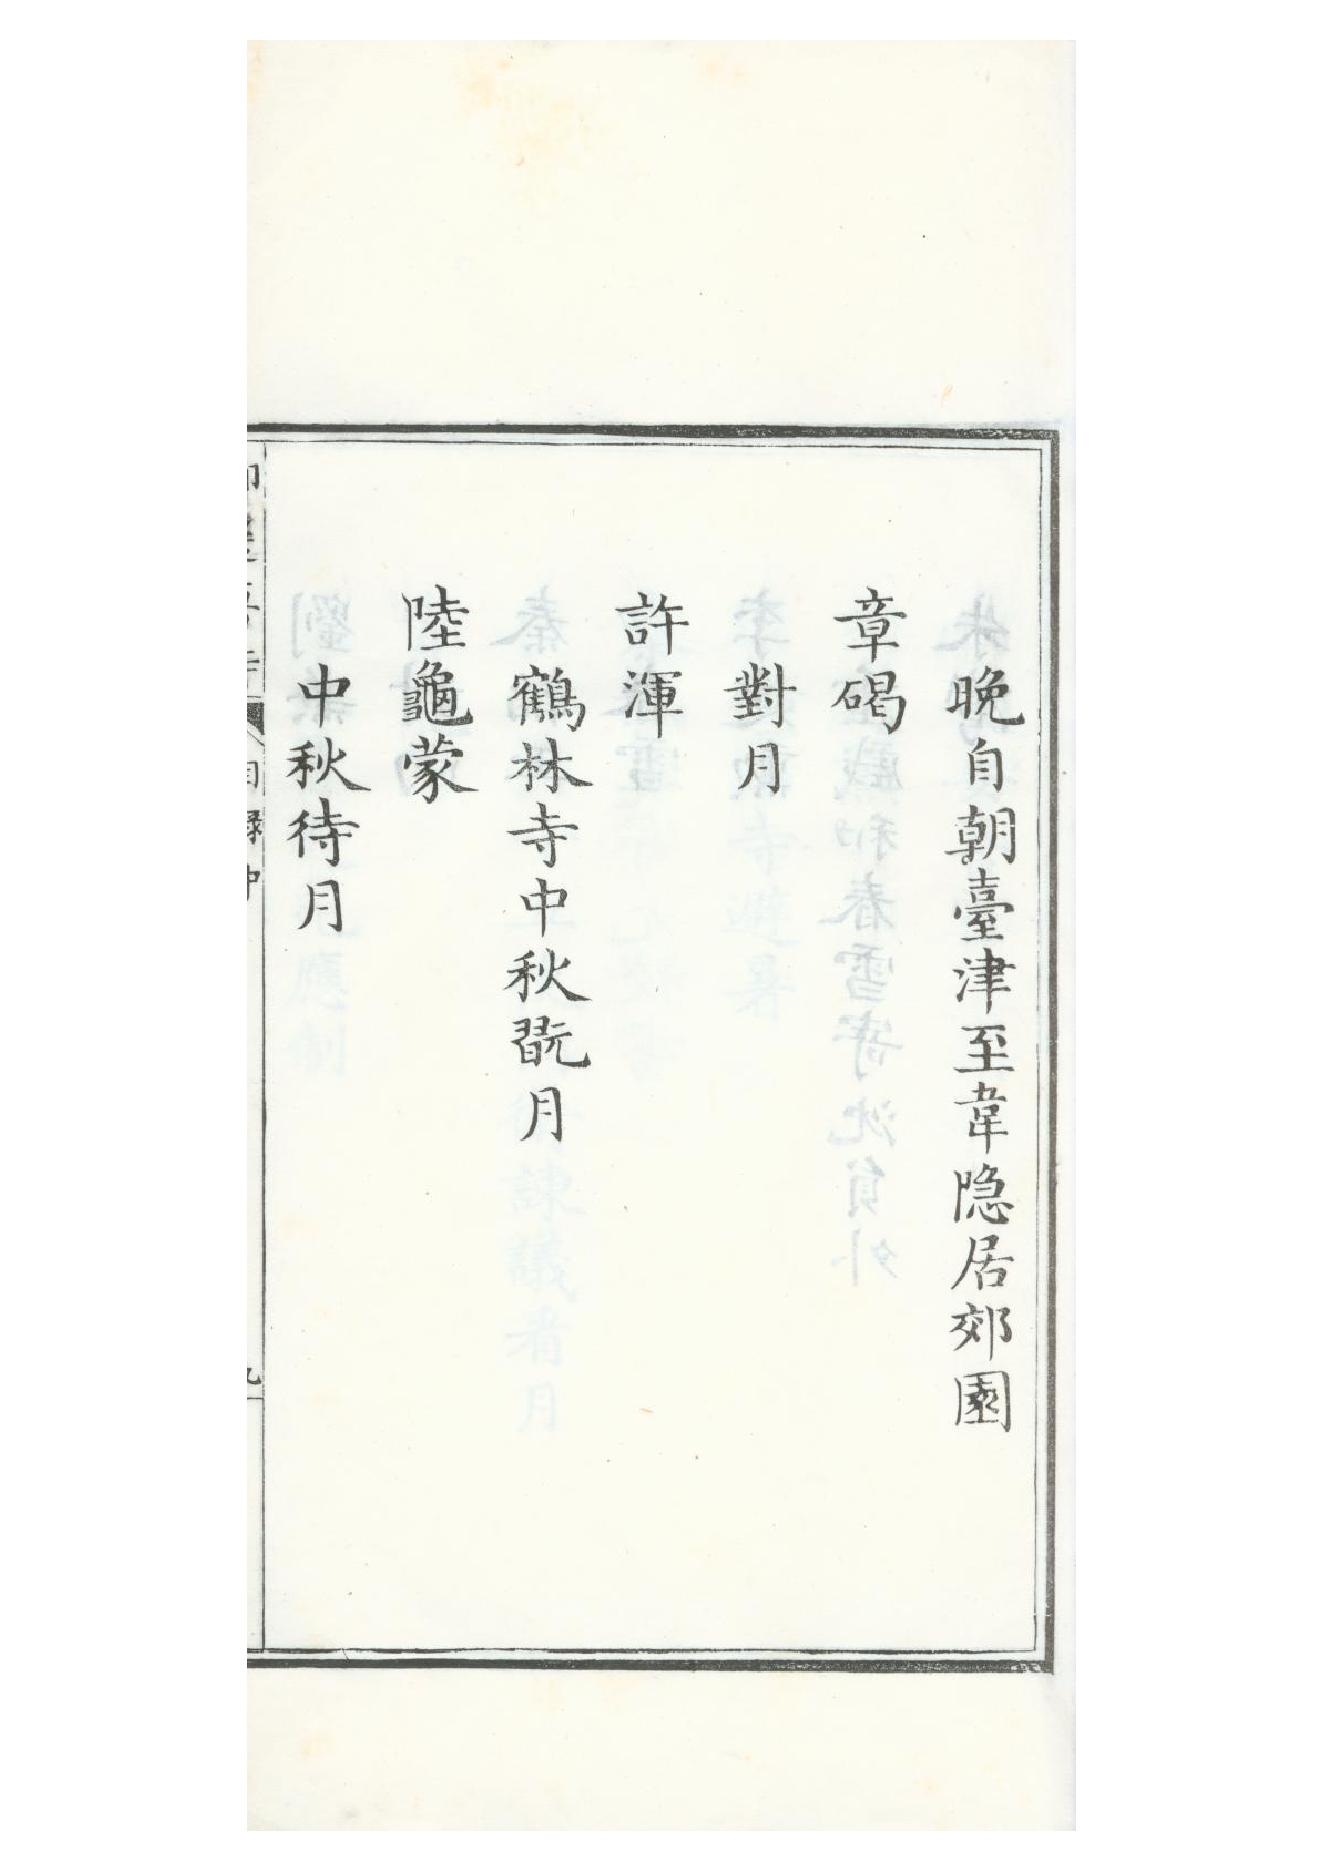 晚自朝臺津至韋隐居郊園
章碣
對月
許渾
鶴林寺中秋翫月
陸龜蒙
中秋待月
目錄中